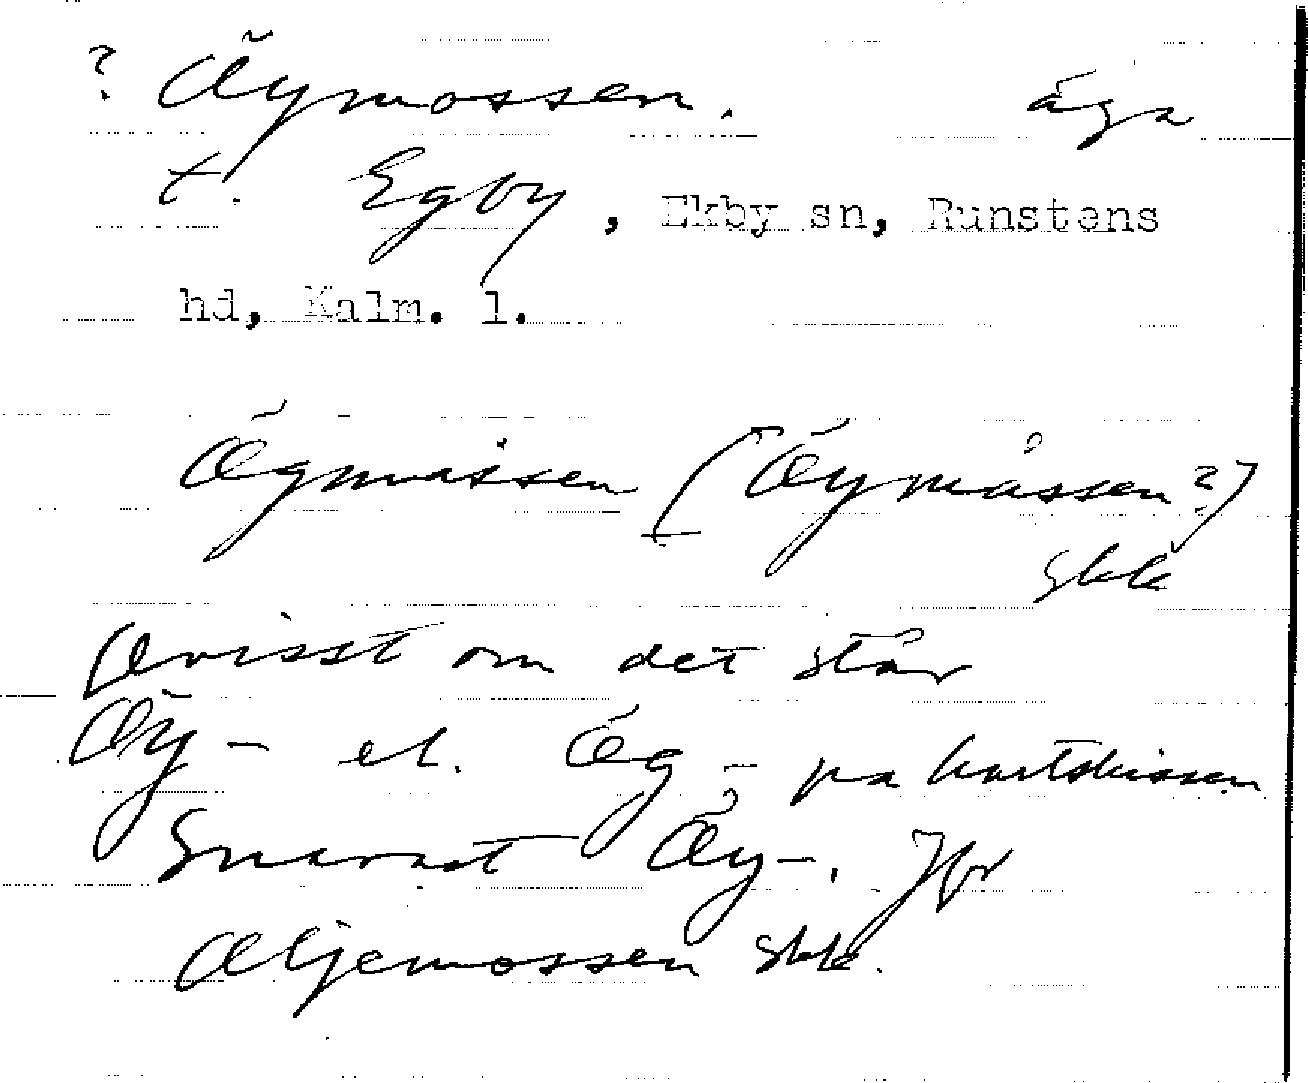 ? Äymossen. äga
t. Egby, Ekby sn, Runstens
hd, Kalm. l.
Ägmossen (Äymåssen?)
Ovisst om det står
Äy- el. Äg- på kartskissen
Snarast Äy-. Jfr
Äljemossen